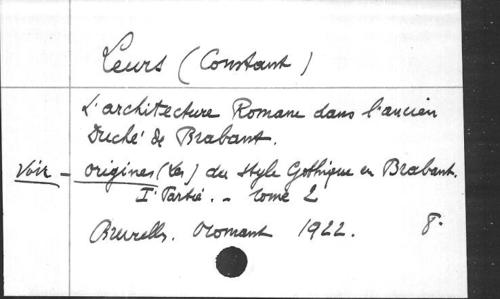 Leurs (Constant)
L'architecture Romane dans l'ancien
Duché de Brabant.
Voir - origines (Les) du style Gothique en Brabant.
I° Partie. - tome 2
Bruxelles. Vromant 1922. 8°.